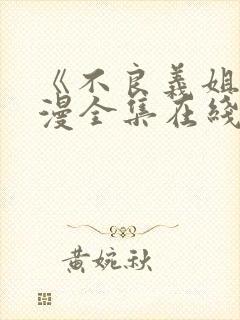 《不良義姐
漫全集在綫
黄婉秋